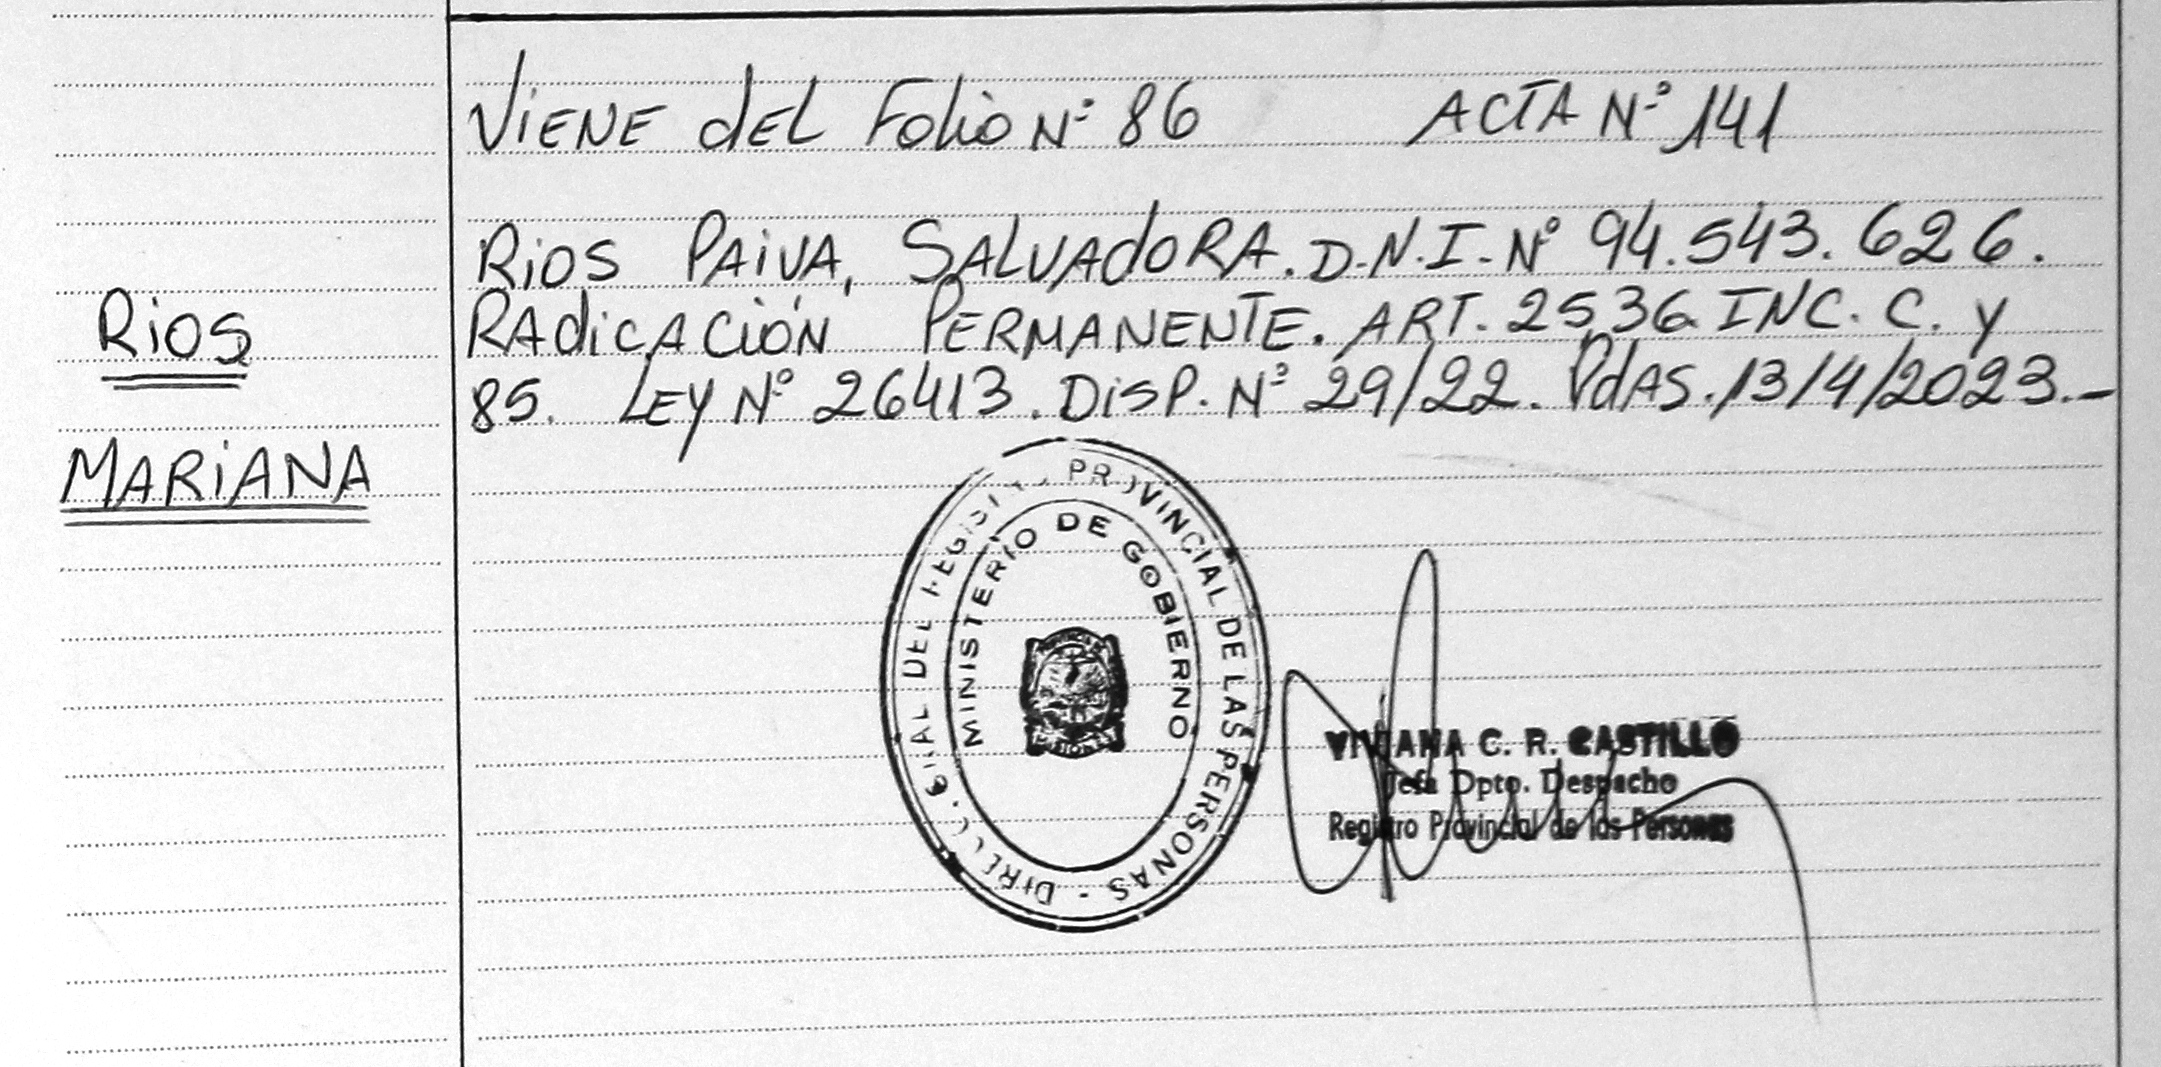 VIENE dEL Folio Nº 86 ACTA Nº 141
Rios PAiVA, SALVAdORA. D.N.I. Nº 94.543.626.
RAdiCACióN PERMANENTE. ART. 2536 INC. C. y
85. LEY Nº 26413. DISP. Nº 29/22. PdAS. 13/4/2023.-
Rios
MARiANA
PROVINCIAL DE LAS PERSONAS - 
MINISTERIO DE GOBIERNO
VIVIANA C. R. CASTILLO
Jefa Dpto. Despacho
Registro Provincial de las Personas